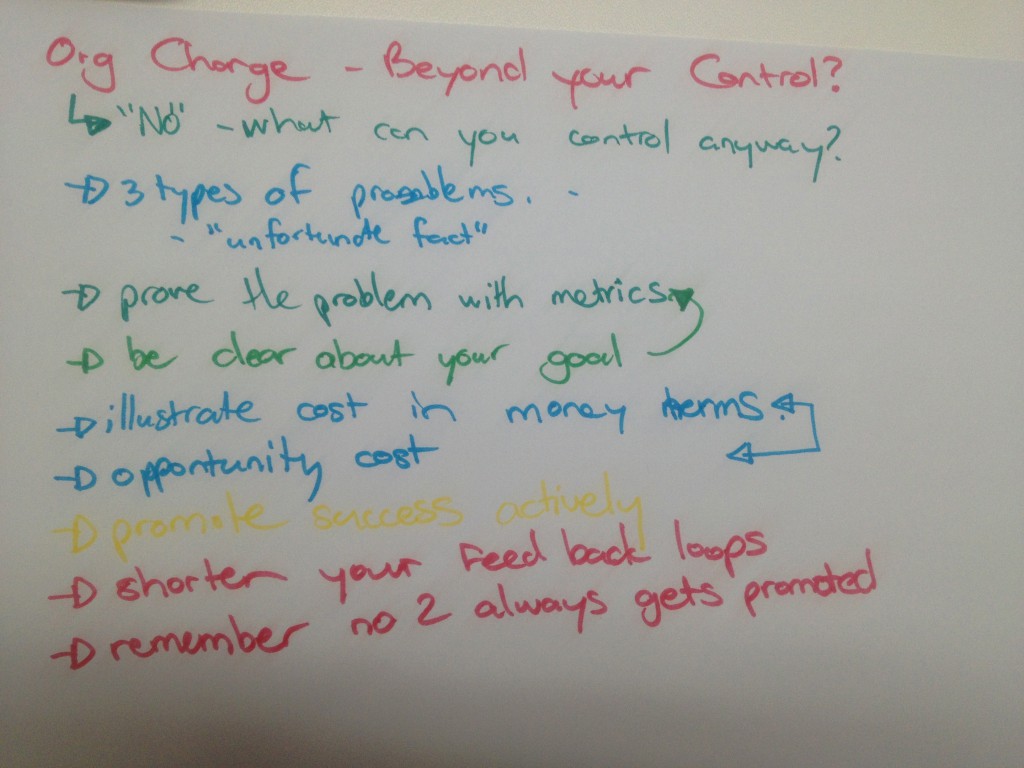 Org Change - Beyond your Control?
"No" - what can you control anyway?
3 types of prosablems. -
- "unfortunate fact"
prove the problem with metrics.
be clear about your goal
illustrate cost in money terms.
opportunity cost
promote success actively
shorten your Feed back loops
remember no 2 always gets promoted